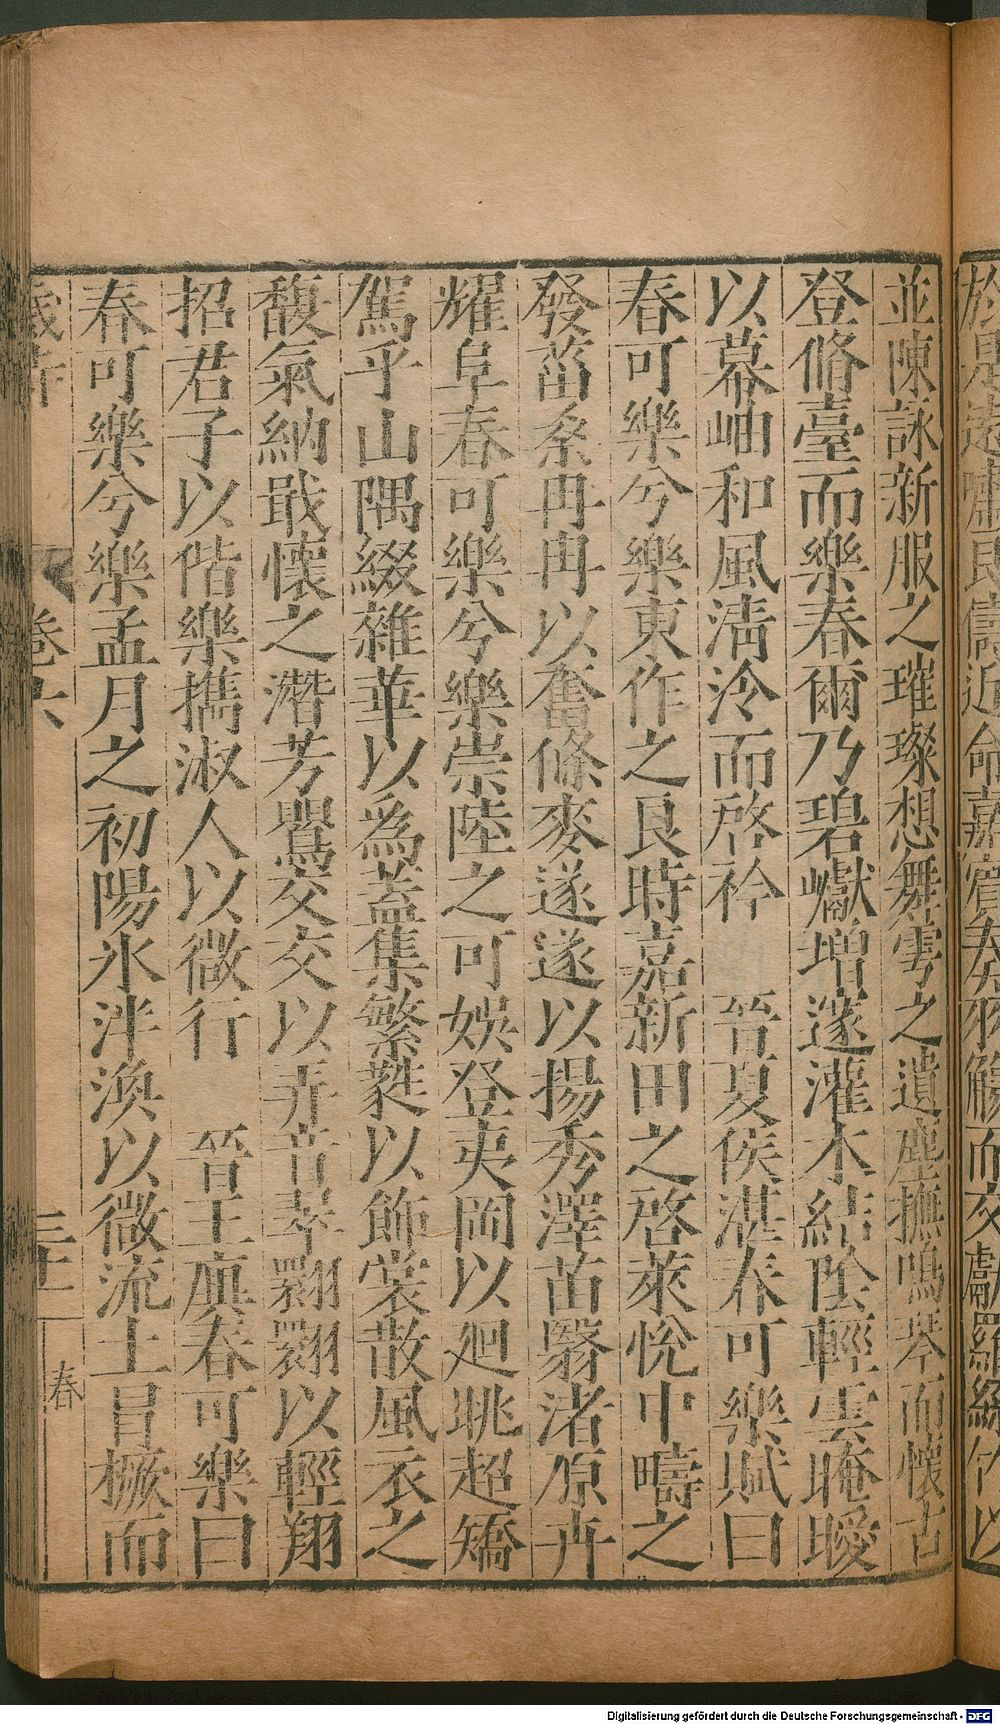 並陳詠新服之璀璨想舞雩之遺塵撫鳴琴而懷古
登脩臺而樂春爾乃碧巘增邃灌木結陰輕雲晻曖
以幕岫和風清泠而啓衿　晉夏侯湛春可樂賦曰
春可樂兮樂東作之良時嘉新田之啓萊悅中疇之
發菑桑冉冉以奮條麥遂遂以揚秀澤苗翳渚原卉
耀阜春可樂兮樂崇陸之可娛登夷岡以迴眺超矯
駕乎山隅綴雜華以爲蓋集繁蕤以飾裳散風衣之
馥氣納戢懷之潛芳鸎交交以弄音翠翾翾以輕翔
招君子以偕樂攜淑人以微行　晉王廙春可樂曰
春可樂兮樂孟月之初陽冰泮渙以微流土冒橛而
歲時　卷六　三十一　春
Digitalisierung gefördert durch die Deutsche Forschungsgemeinschaft - DFG